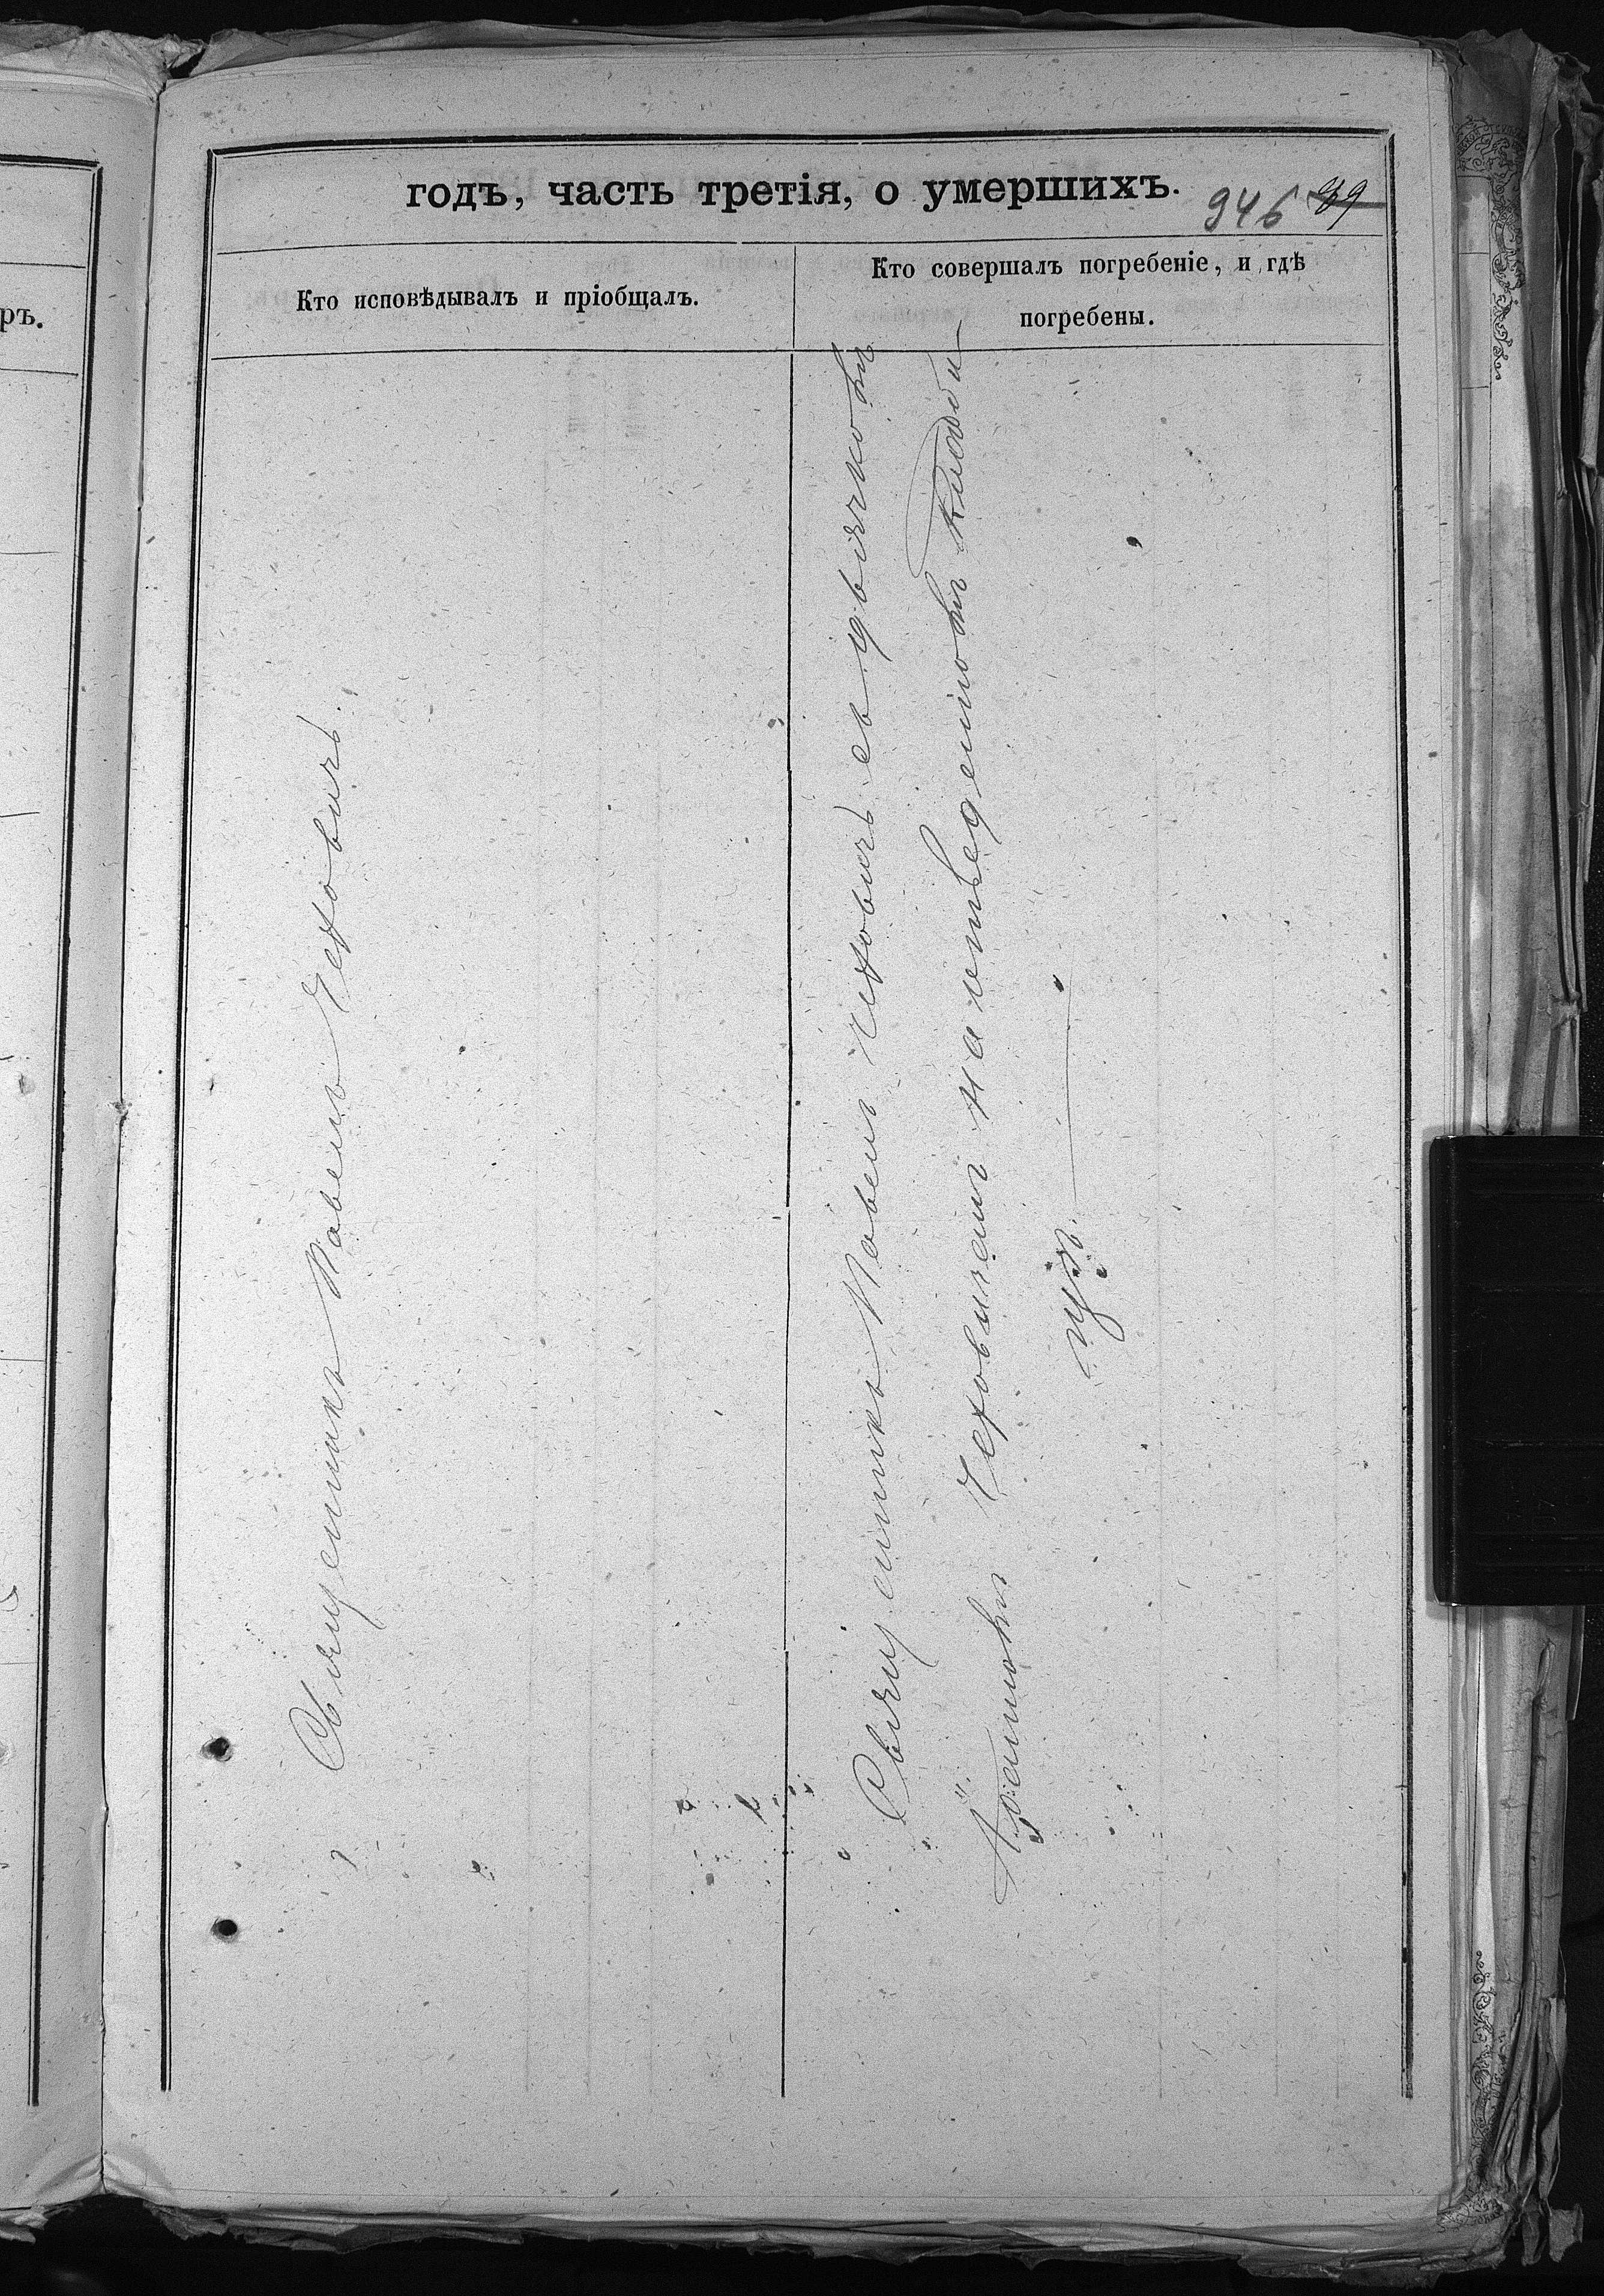 ръ.
годъ, часть третія, о умершихъ.
946 89
Кто исповѣдывалъ и пріобщалъ.
Кто совершалъ погребеніе, и гдѣ
погребены.
Священникъ Павелъ Чеховичъ.
Священникъ Павелъ Чеховичъ съ дьячкомъ
Чеховичемъ на отведенномъ кладби
щѣ.